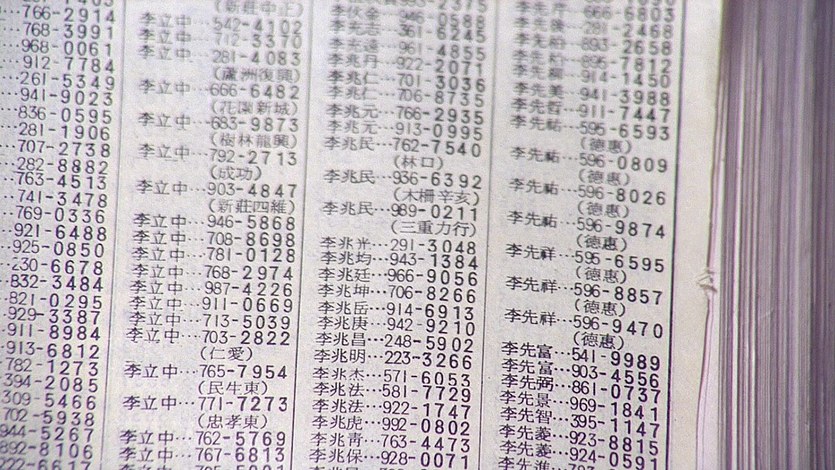 766-2914
768-3991
968-0061
912-7784
261-5349
941-9023
836-0595
281-1906
707-2738
282-8882
763-4513
741-3478
769-0336
921-6488
925-0850
230-6678
832-3484
821-0295
929-3387
911-8984
913-6812
782-1273
394-2085
309-5466
702-5938
944-5267
892-8106
(新莊中正)
李立中…542-4102
李立中…712-3370
李立中…281-4083
(蘆洲復興)
李立中…666-6482
(花園新城)
李立中…683-9873
(樹林龍興)
李立中…792-2713
(成功)
李立中…903-4847
(新莊四維)
李立中…946-5868
李立中…708-8698
李立中…781-0128
李立中…768-2974
李立中…987-4226
李立中…911-0669
李立中…713-5039
李立中…703-2822
(仁愛)
李立中…765-7954
(民生東)
李立中…771-7273
(忠孝東)
李立中…762-5769
李立中…767-6813
李伙金…946-0588
李充志…361-6245
李充遠…961-4855
李兆丹…922-2071
李兆仁…701-3036
李兆仁…706-8735
李兆元…766-2935
李兆元…913-0995
李兆民…762-7540
(林口)
李兆民…936-6392
(木柵辛亥)
李兆民…989-0211
(三重力行)
李兆光…291-3048
李兆均…943-1384
李兆廷…966-9056
李兆坤…706-8266
李兆岳…914-6913
李兆庚…942-9210
李兆昌…248-5902
李兆明…223-3266
李兆杰…571-6053
李兆法…581-7729
李兆法…922-1747
李兆虎…992-0802
李兆青…763-4473
李兆保…928-0071
李先芹…666-6803
李先俊…281-2468
李先柏…893-2658
李先柏…895-7812
李先桐…914-1450
李先美…941-3988
李先哲…911-7447
李先祐…595-6593
(德惠)
李先祐…596-0809
(德惠)
李先祐…596-8026
(德惠)
李先祐…596-9874
(德惠)
李先祥…595-6595
(德惠)
李先祥…596-8857
(德惠)
李先祥…596-9470
(德惠)
李先富…541-9989
李先富…903-4556
李先弼…861-0737
李先景…969-1841
李先智…395-1147
李先菱…923-8815
李先菱…924-0591